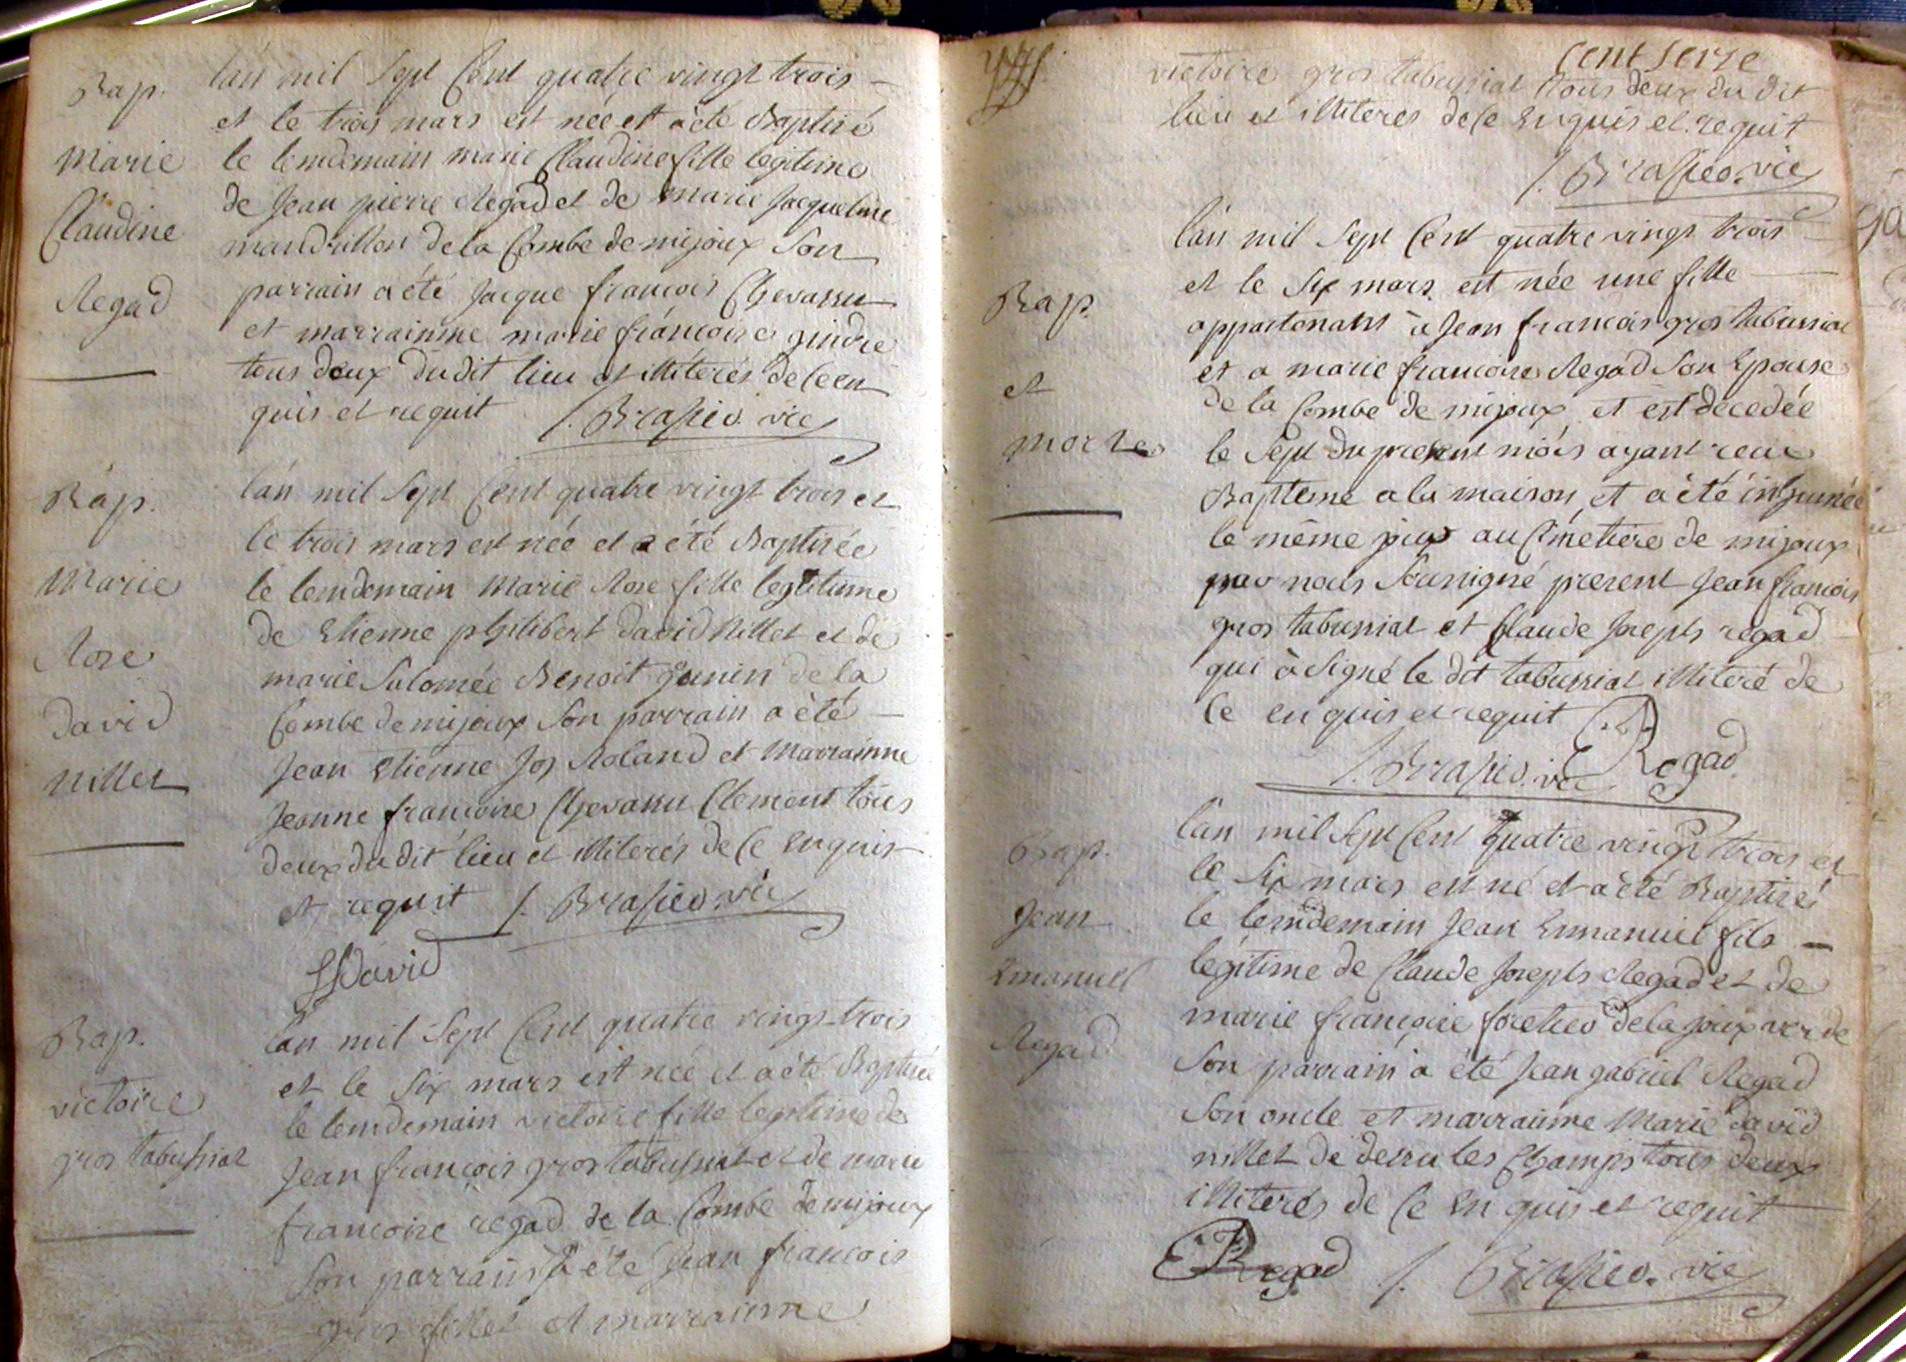 Bap.
Marie
Claudine
Regad
lán mil Sept Cent quatre vingt trois
et le trois mars est née et a été Baptisé
le lemdemain marie Claudine fille legitime
de Jean pierre Regad et de marie Jacqueline
mandrillon de la Combe de mijoux Son
parrain a été Jacque francois Chevassu
et marrainne marie francoise guidre
tous deux du dit lieu et illiterés de Ce en
quis et requit J. Brasieo. vic
Bap.
Marie
Rose
David
Nillet
lán mil Sept Cent quatre vingt trois et
le trois mars est née et a été Baptisée
le lemdemain Marie Rose fille legitimme
de Etienne philibert david Nillet et de
marie Salomée Benoit gonin de la
Combe de mijoux Son parrain a été
Jean Etienne Jos Roland et Marrainne
Jeanne francoise Chevassu Clement tous
deux du dit lieu et illiterés de Ce Enquis
et requit J. Brasieo. vic
David
Bap.
victoire
gros tabussiat
lán mil Sept Cent quatre vingt trois
et le Six mars est née et a été Baptisée
le lemdemain victoire fille legitime de
Jean francois gros tabussiat et de marie
francoise regad de la Combe de mijoux
Son parrain a été Jean francois
gros fillet et marrainne
Cent Seize
victoire gros tabussiat tous deux du dit
lieu et illiteres de Ce Enquis et requit
J. Brasieo. vic
Bap.
et
morte
lán mil Sept Cent quatre vingt trois
et le Six mars est née une fille
appartenant à Jean francois gros tabussiat
et a marie francoise Regad Son Epouse
de la Combe de mijoux et est décedée
le Sept du present mois ayant reçue
Bapteme a la maison et a été inhumée
le même jour au Cimetiere de mijoux
par nous Soussigné present Jean francois
gros tabussiat et Claude Joseph regad
qui à Signé le dit tabussiat illiteré de
Ce enquis et requit
J. Brasieo. vic Regad
Bap.
Jean
Emanuel
Regad
lán mil Sept Cent quatre vingt trois et
le Six mars est né et a été Baptisé
le lemdemain Jean Emanuel fils
légitime de Claude Joseph Regad et de
marie françoise de la Joux verde
Son parrain a été Jean gabriel Regad
Son oncle et marrainne Marie david
nillet de dessu les Champs tous deux
illiterés de Ce Enquis et requit
Regad J. Brasieo. vic